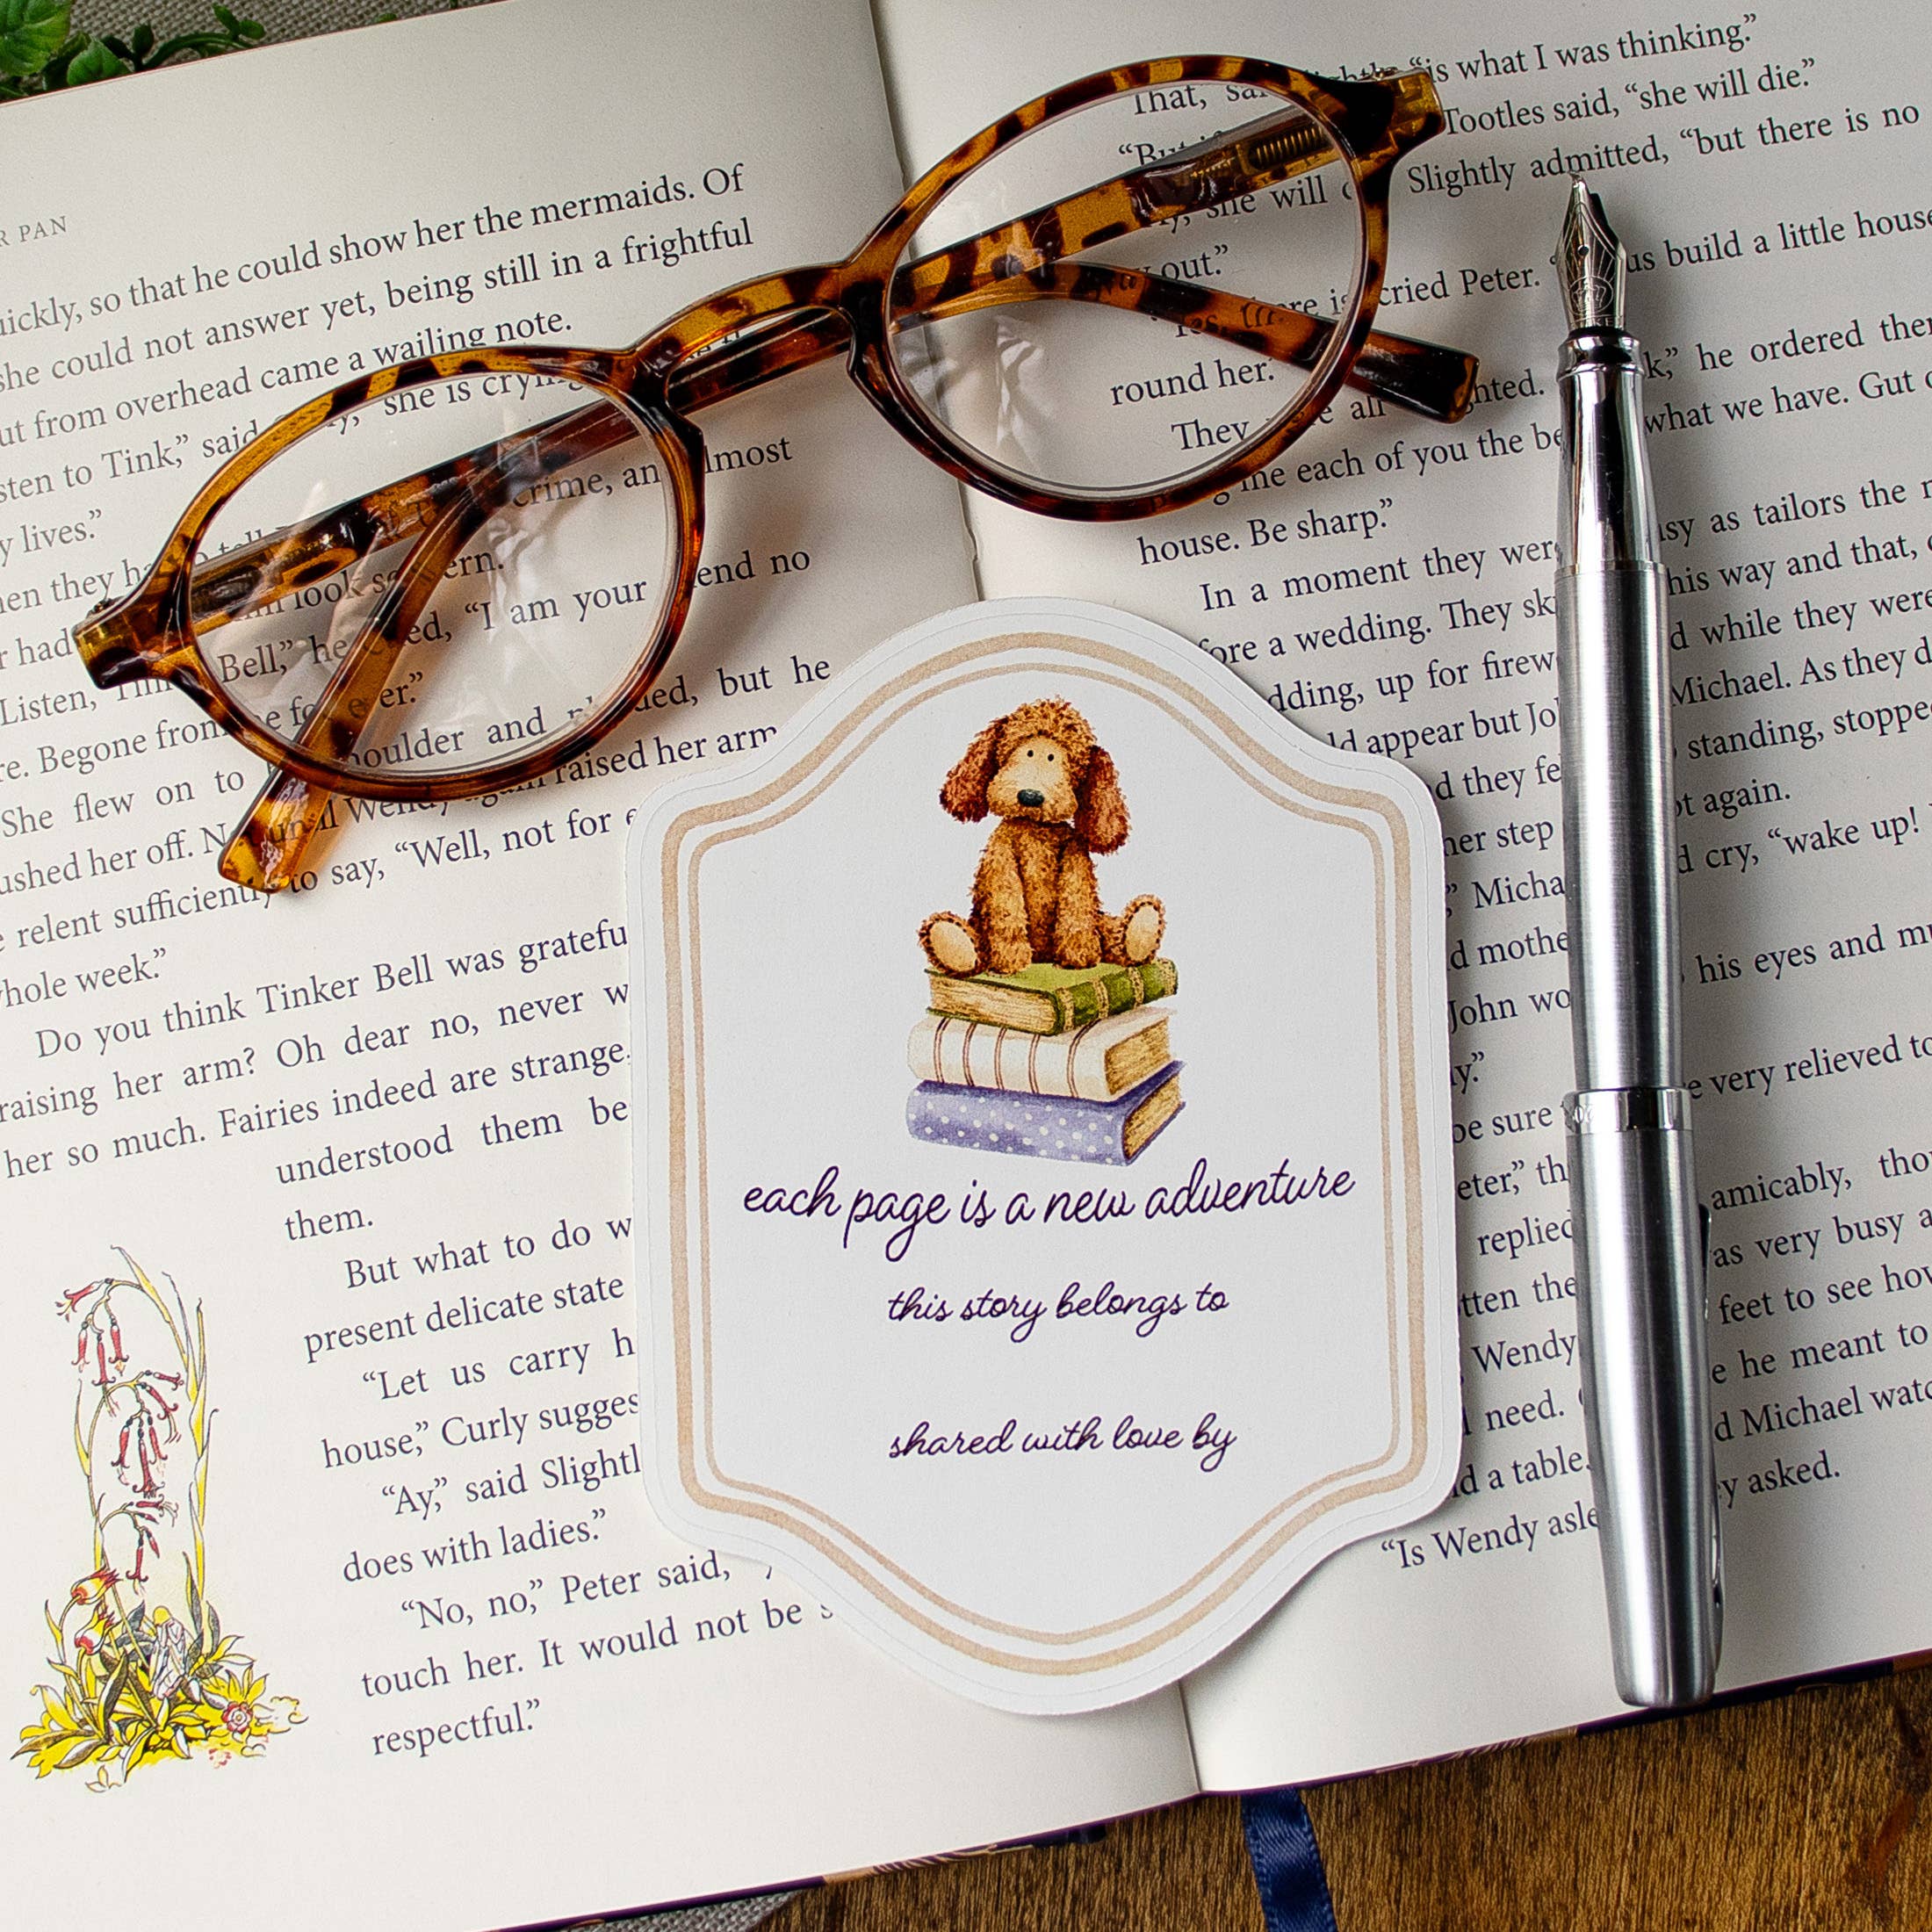 R PAN
uickly, so that he could show her the mermaids. Of
she could not answer yet, being still in a frightful
ut from overhead came a wailing note.
sten to Tink," said she is
y lives."
hen they crime, an lmost
r had look
Listen, Bell," he "I am your end no
re. Begone from
She flew on to houlder and ded, but he
ushed her off. Wendy again raised her arm
e relent sufficiently to say, "Well, not for e
whole week."
Do you think Tinker Bell was gratefu
raising her arm? Oh dear no, never w
her so much. Fairies indeed are strange
understood them be
them.
But what to do w
present delicate state
"Let us carry h
house," Curly sugges
"Ay," said Slightl
does with ladies."
"No, no," Peter said,
touch her. It would not be s
respectful."
That, "is what I was thinking."
"But Tootles said, "she will die."
she will Slightly admitted, "but there is no
out."
cried Peter. us build a little house
round her." k," he ordered ther
They all hted. what we have. Gut o
me each of you the be
house. Be sharp."
In a moment they were sy as tailors the n
fore a wedding. They sk his way and that,
dding, up for firew d while they were
ld appear but Jo Michael. As they d
d they fe standing, stoppe
her step t again.
d cry, "wake up!
" Micha
d mothe his eyes and mu
John wo
y."
e very relieved to
be sure
eter," th amicably, thou
replied as very busy a
tten the feet to see how
Wendy e he meant to
need. d Michael watc
d a table. y asked.
"Is Wendy asle
each page is a new adventure
this story belongs to
shared with love by